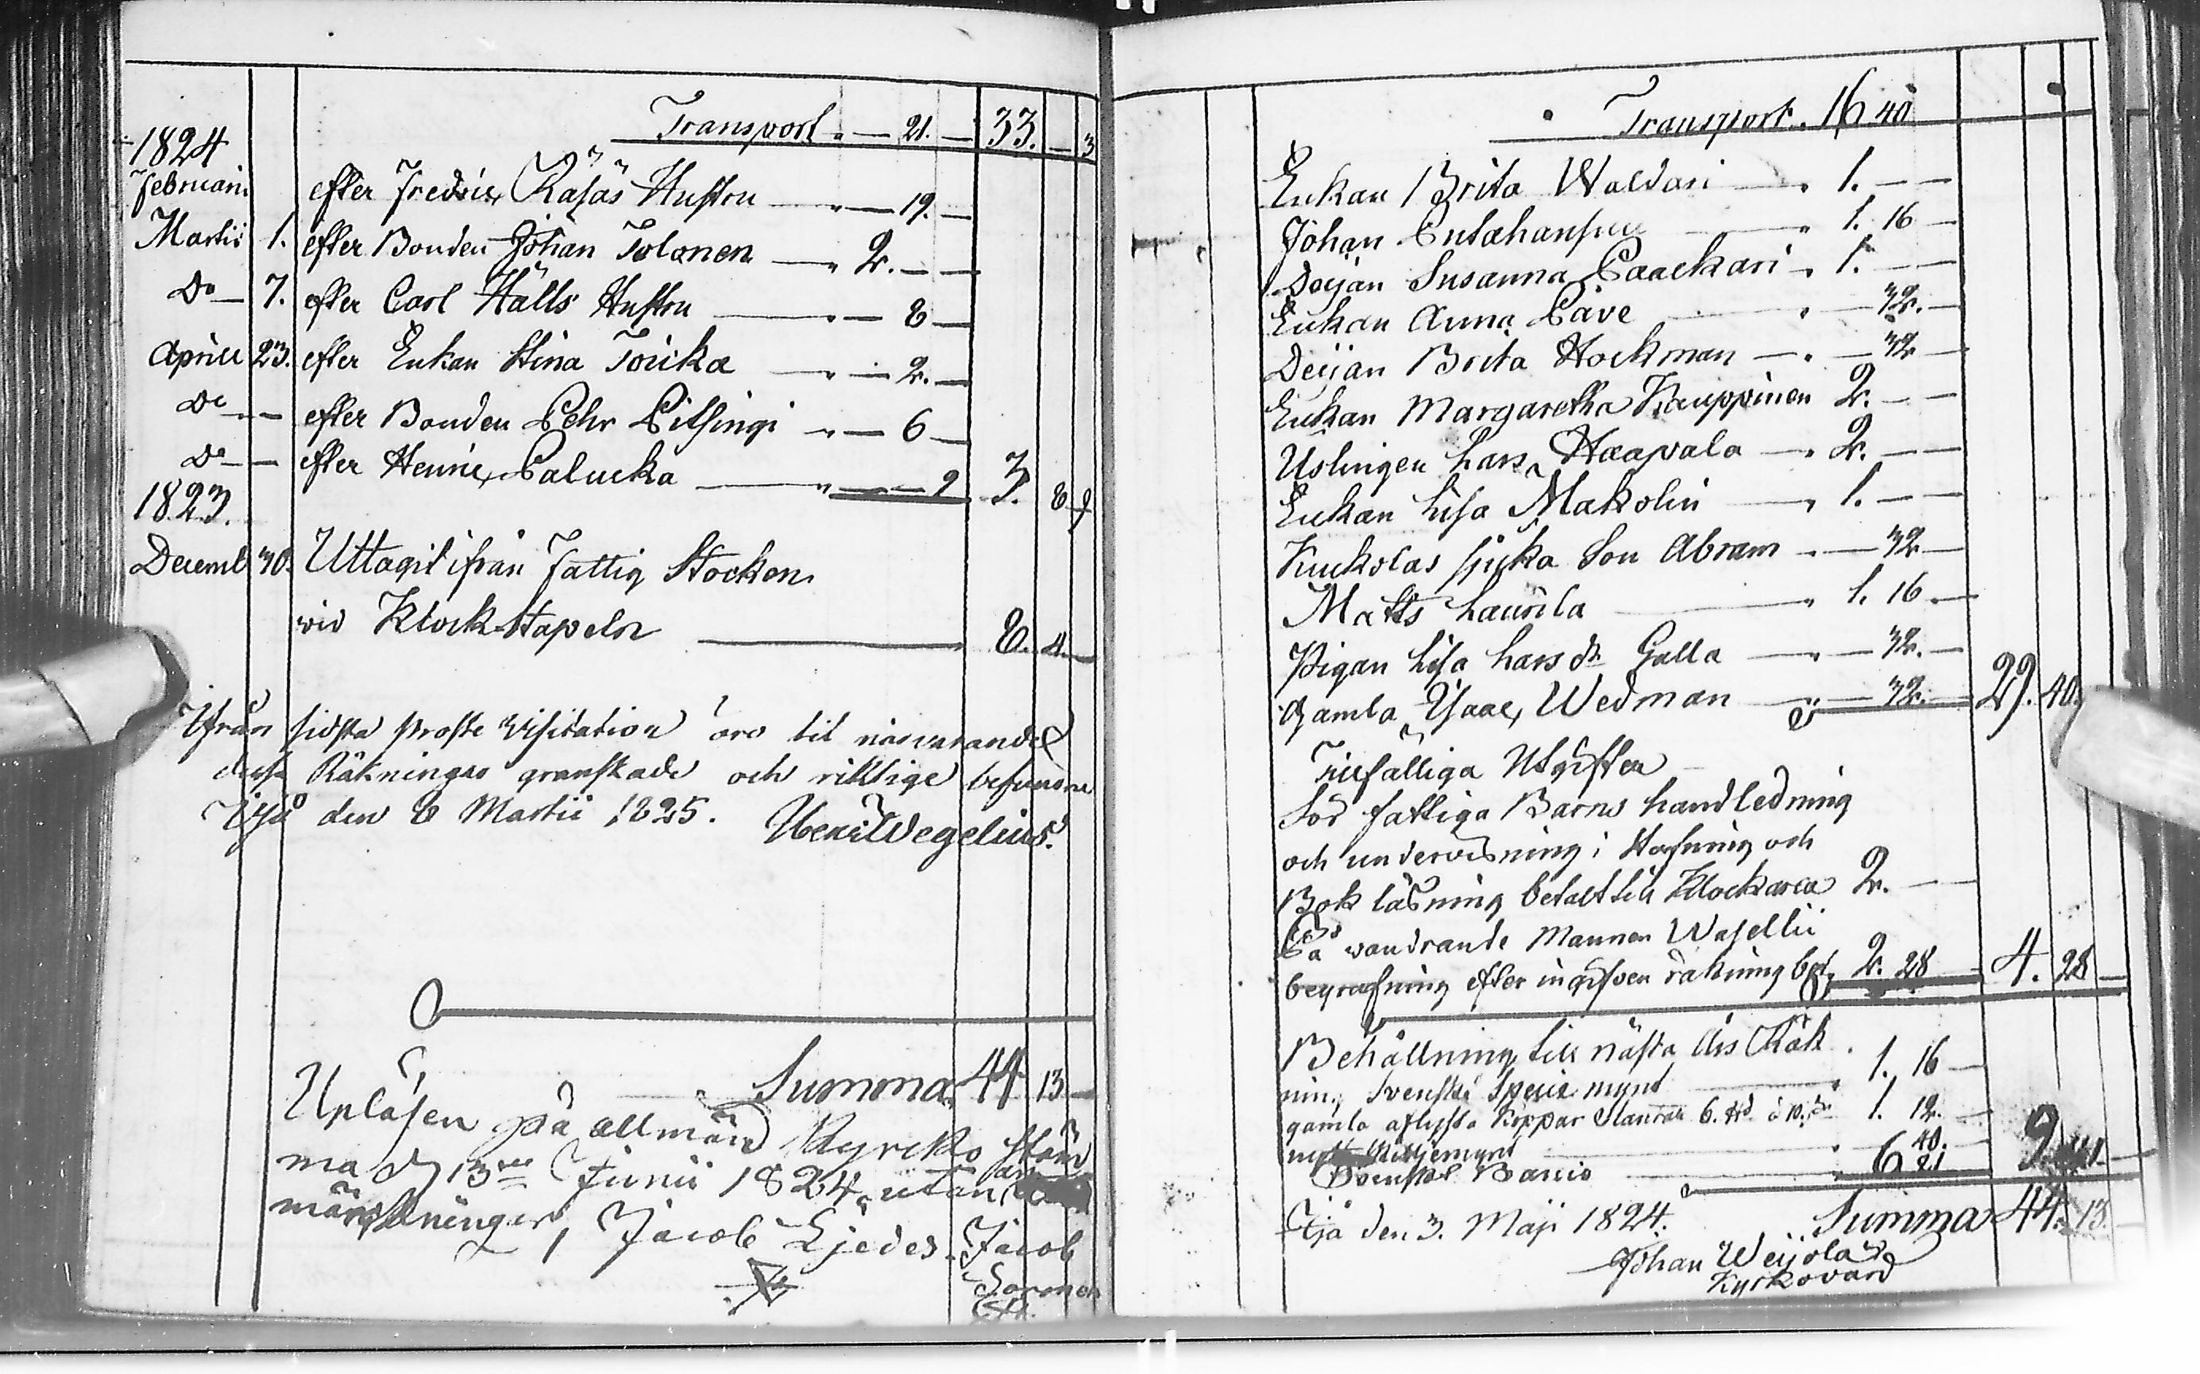 Transport „ — 21. — 33. — 3
1824
Februarii efter Fredric Räfäs Hustru — „ — 19. —
Martii 1. efter Bonden Johan Tolonen — „ 2. — —
Do — 7. efter Carl Hälls Hustru — „ — 8 —
Aprill 23. efter Enkan Stina Toicka — „ — 2. —
Do — — efter Bonden Pehr Pitsingi „ — 6 —
Do — — efter Henric Palucka — „ — 9 3. 8 9
1823.
Decemb 30. Uttagit ifrån Fattig Stocken
vid Klock Stapeln — 8. 4. —
Ifrån sidsta Proste Visitation äro til närvarande
dessa Räkningar granskade och riktige befundne
Ijo den 8 Martii 1825. Wegelius.
Summa. 44 13 —
Upläsen på allmän Kyrcko Stäm
ma d 13de Junii 1824, utan an
märkningar, Jacob Ljedes. Jacob
Sormon
Transport. 16 40
Enkan Brita Waldari — „ 1. — —
Johan — „ 1. 16 —
Deijan Susanna Paackari „ 1. — —
Enkan Anna Päve — „ — 32. —
Deijan Brita Hockman — „ — 32 —
Enkan Margaretha Kauppinen 2. — —
Uslingen Lars Haapala — „ 2. — —
Enkan Lisa Makolin — „ 1. — —
Kuukolas sjuka Son Abram „ — 32 —
Matts Laurila — „ 1. 16 —
Pigan Lisa Lars dr Galla — „ — 32. —
Gamla Isaac Wedman — „ — 32. — 29. 40.
Tillfälliga Utgifter
för fattiga Barns handledning
och undervisning i Stafning och
Bok läsning betalt till Klockaren 2. — —
På vandrande Mannen Wasellii
begrafning efter ingifven räkning bet. 2. 28 4. 28 —
Behållning till nästa Års Räk
ning Svenskt Specie mynt — „ 1. 16 —
gamla aflysta Koppar Slantar 6. 1. 12. —
40. —
Svenskt Banco — 6 21 9
Ijo den 3. Maji 1824. Summa 44. 13.
Johan Weijola
Kyrkovärd